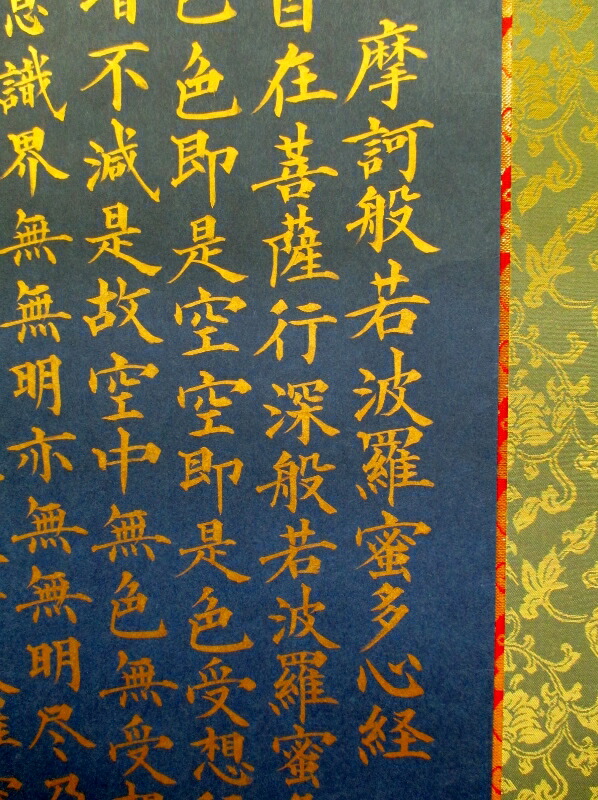 摩訶般若波羅蜜多心経
自在菩薩行深般若波羅蜜
色色即是空空即是色受想
不減是故空中無色無受想
意識界無無明亦無無明尽乃